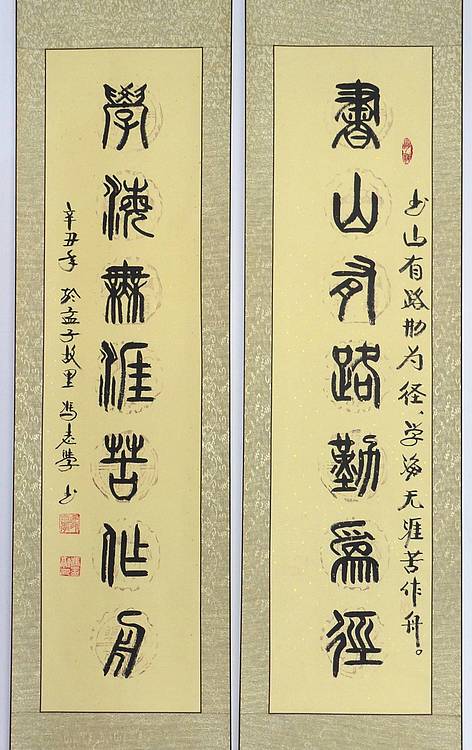 書山有路勤為徑
书山有路勤为径、学海无涯苦作舟。
學海無涯苦作舟
辛丑年 於孟子故里 冯志学 书